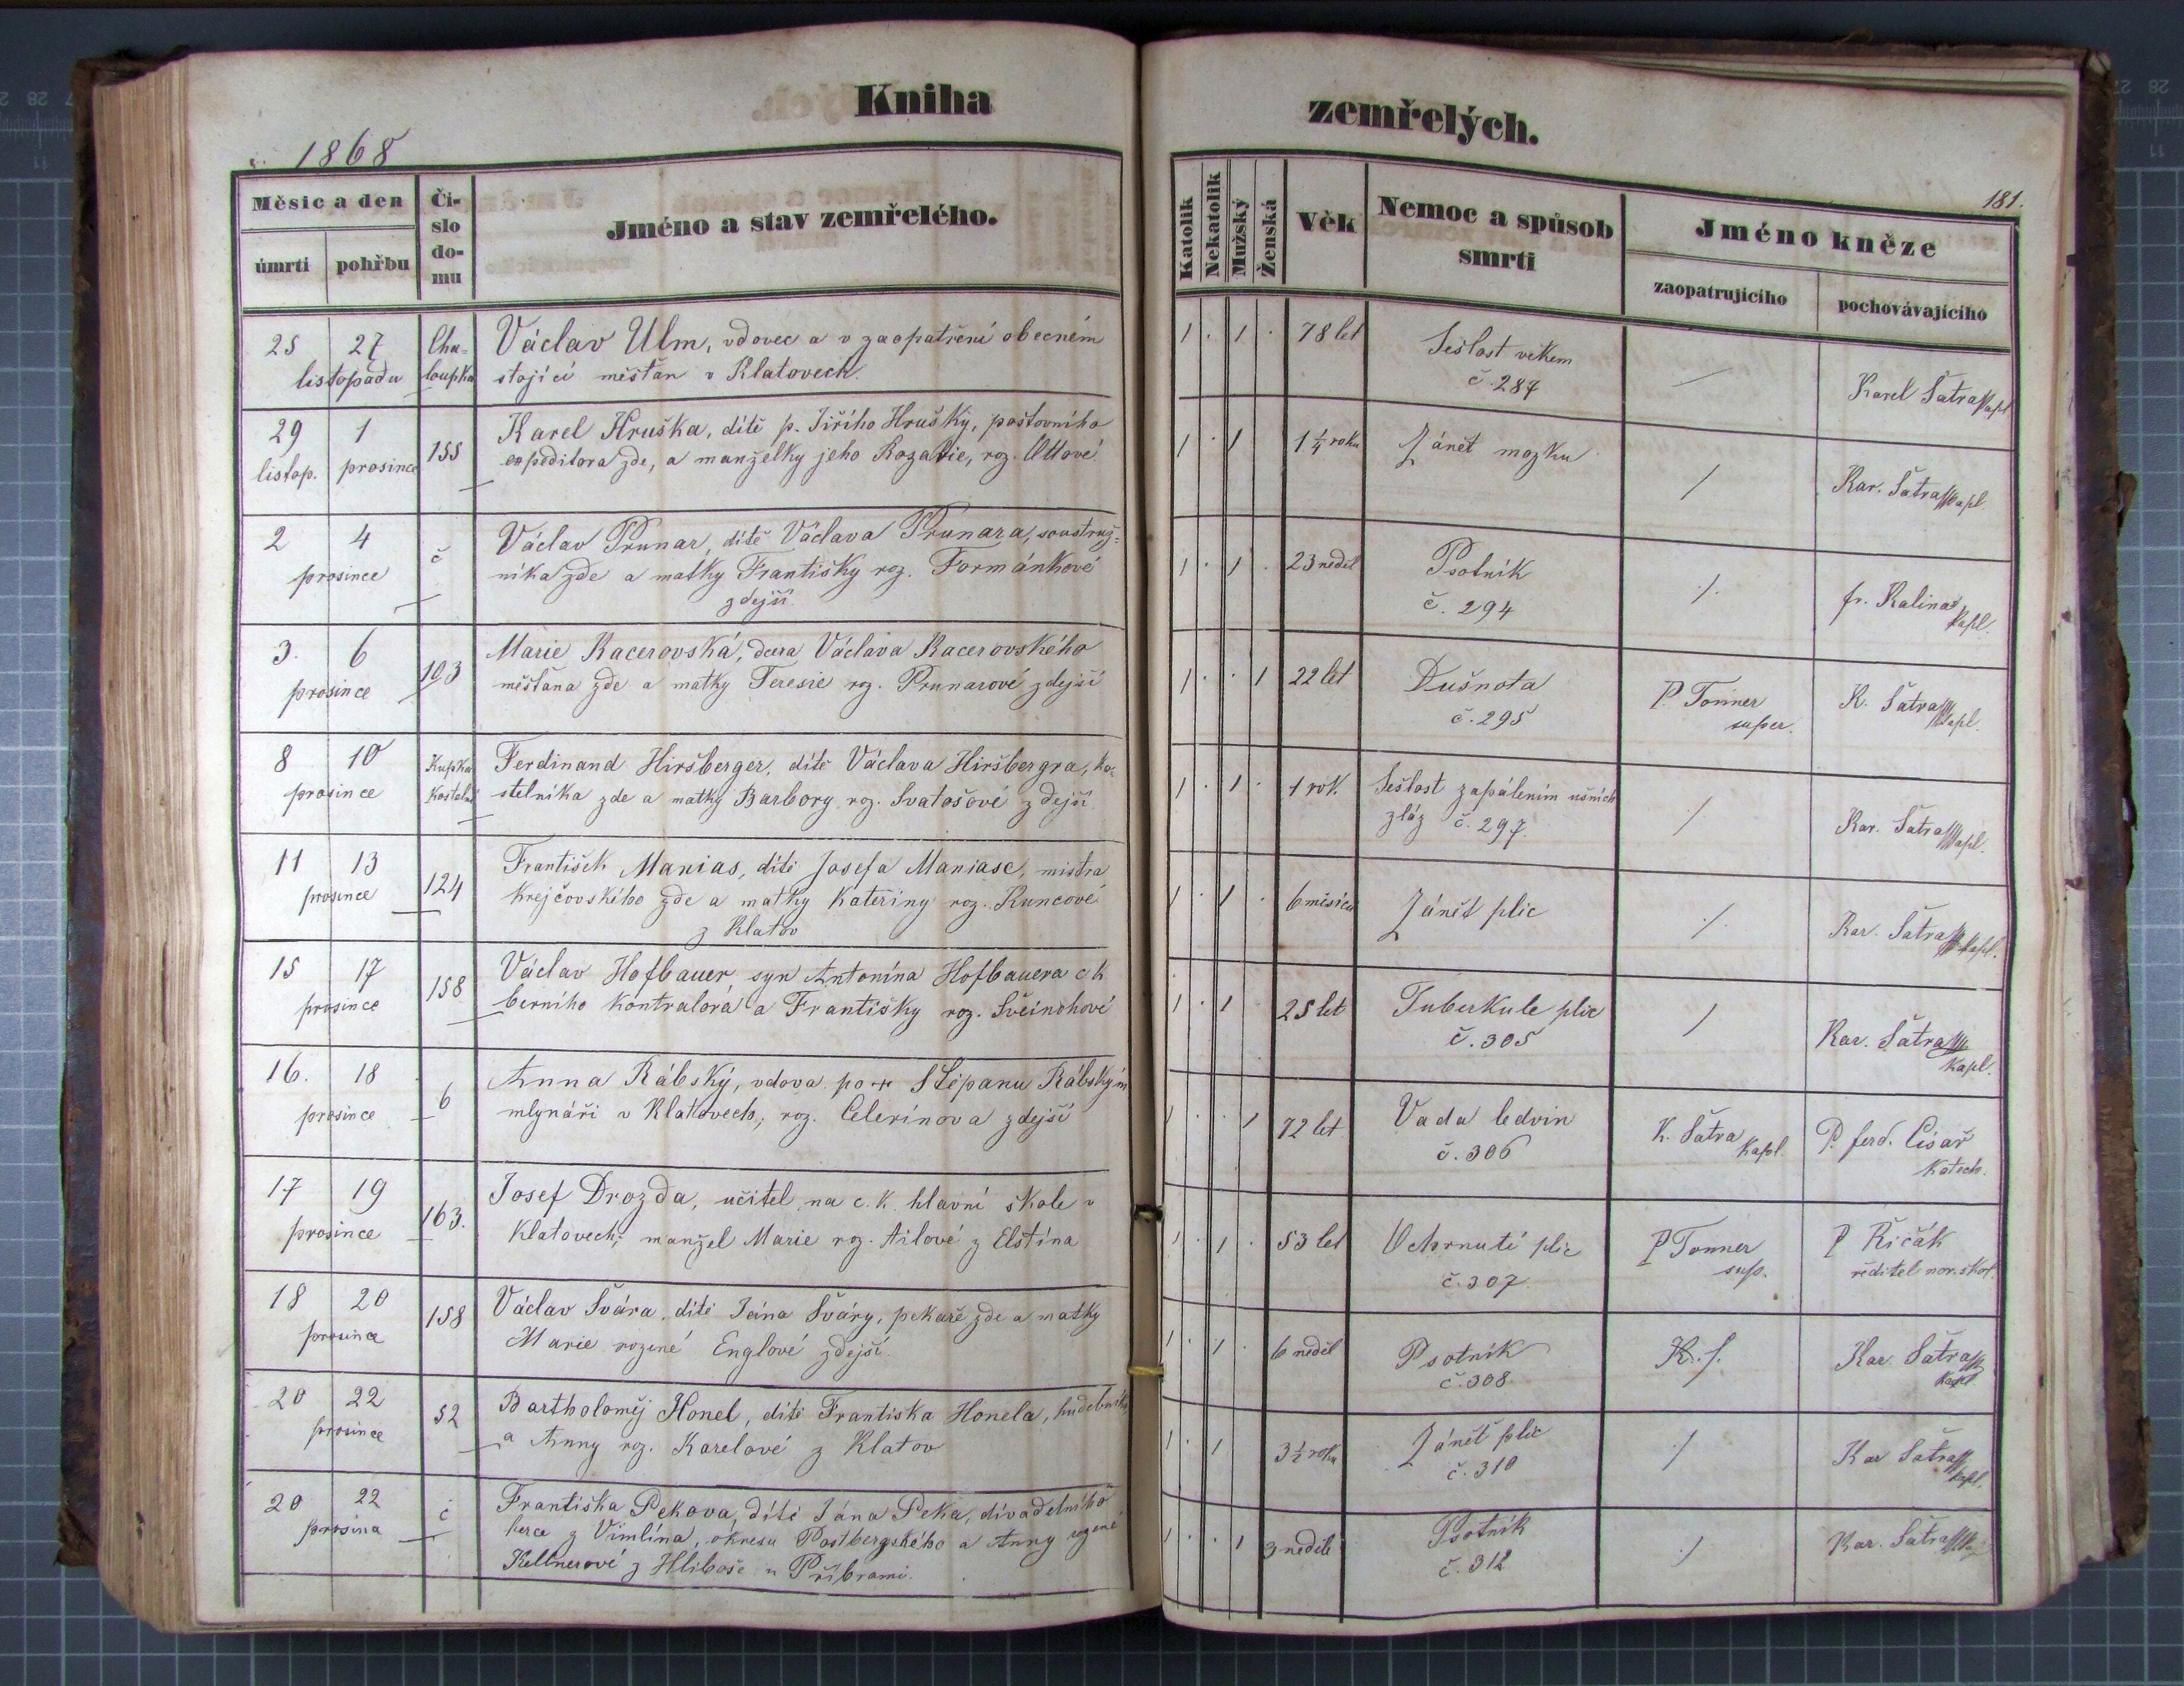 Kniha
zemřelých.
1868
181.
Měsíc a den
úmrtí
pohřbu
Čí-
slo
do-
mu
Jméno a stav zemřelého.
Katolík
Nekatolík
Mužský
Ženská
Věk
Nemoc a spůsob
smrti
Jméno kněze
zaopatrujícího
pochovávajícího
25 27 Cha= Václav Ulm, vdovec a v zaopatření obecném
listopadu loupka stojící měšťan v Klatovech.
1 . 1 . 78 let Sešlost věkem
č. 287
Karel Šatra kapl
29 1 155 Karel Hruška, dítě p. Jiřího Hrušky, poštovního
listop. prosince expeditora zde, a manželky jeho Rozalie, roz. Ottové
1 . 1 1 1/4 roku Zánět mozku / Kar. Šatra kapl.
2 4 č Václav Prunar, dítě Václava Prunara, soustruž=
prosince níka zde a matky Františky roz. Formánkové
zdejší
1 . 1 . 23 neděl Psotník
č. 294
fr. Kalina
kapl.
3. 6 103 Marie Kacerovská, dcera Václava Kacerovského
prosince měšťana zde a matky Teresie roz. Prunarové zdejší
1 . . 1 22 let Dušnota
č. 295
P. Tonner
super.
K. Šatra kapl.
8 10 Kupka Ferdinand Hiršberger, dítě Václava Hiršbergra, ko-
prosince Kostelní stelníka zde a matky Barbory roz. Svatošové zdejší
1 . 1 . 1 rok. Sešlost zapálením ušních
zláz č. 297.
/ Kar. Šatra kapl.
11 13 124 František Manias, dítě Josefa Maniase, mistra
prosince krejčovského zde a matky Kateřiny roz. Kuncové
z Klatov
1 . 1 . 6 měsíců Zánět plic
Kar. Šatra kapl.
15 17 158 Václav Hofbauer syn Antonína Hofbauera c. k
prosince berního kontralora a Františky roz. Svěinohové
1 . 1 25 let Tuberkule plic
č. 305
/ Kar. Šatra
kapl.
16. 18 6 Anna Rábský, vdova po + Štěpanu Rábským
prosince mlynáři v Klatovech, roz. Celerinova zdejší
1 . . 1 72 let Vada ledvin
č. 306
K. Šatra
kapl.
P. ferd. Císař
katech.
17 19 163. Josef Drozda, učitel na c. k. hlavní škole v
prosince Klatovech, manžel Marie roz. Ailové z Elstína
1 . 1 . 53 let Ochrnutí plic
č. 307
P Tonner
sup.
P Řičák
ředitel nor. škol.
18 20 158 Václav Švára, dítě Jána Šváry, pekaře zde a matky
prosince Marie rozené Englové zdejší.
1 . 1 . 6 neděl Psotník
č. 308.
Kar. Šatra
kapl
20 22 52 Bartholoměj Honel, dítě Františka Honela, hudebníka
prosince a Anny roz. Karelové z Klatov
1 . 1 3 1/2 roku Zánět plic
č. 310
Kar Šatra
kapl.
20 22 č Františka Pekova, dítě Jána Peka, divadelního
prosince herce z Vimlína, okresu Postbergského a Anny rozené
Kellnerové z Hliboše u Příbrami.
1 . . 1 3 neděle Psotník
č. 312
Kar. Šatra